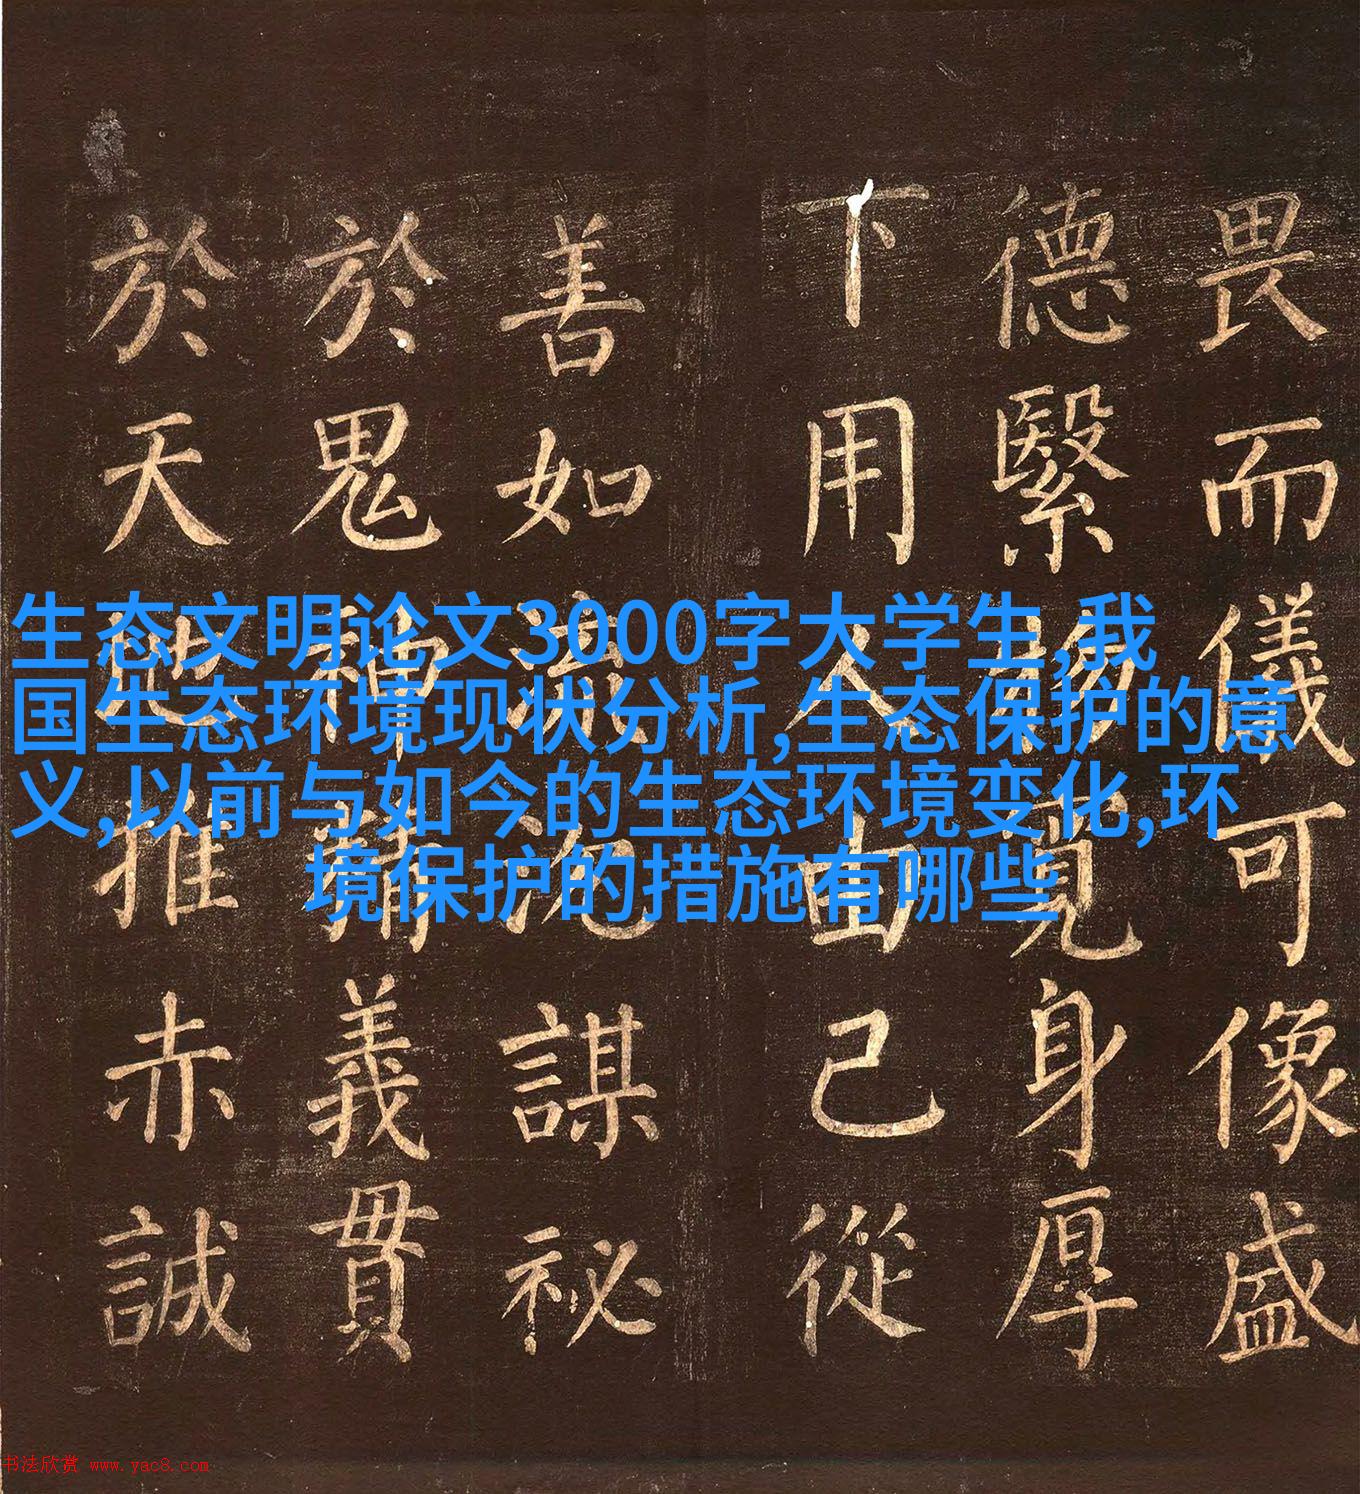 生态文明论文3000字大学生,我
国生态环境现状分析,生态保护的意
义,以前与如今的生态环境变化,环
境保护的措施有哪些
畏而儀可像盛
德繄物寬身厚
下用人由己從
善如流沈謀祕
於鬼神義貫
於天地推赤誠
书法欣赏 www.yac8.com